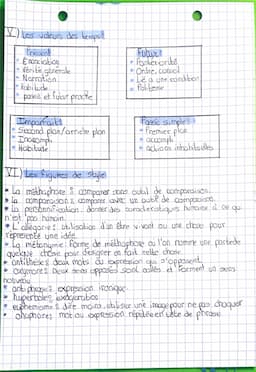 V) Les valeurs des temps
Présent
• Énonciation
• Vérité générale
• Narration
• Habitude
• passé et futur proche
Futur
• Postériorité
• Ordre, conseil
• Lié à une condition
• Politesse
Imparfait
• Second plan/arrière plan
• Inaccompli
• Habitude
Passé simple
• Premier plan
• accompli
• actions inhabituelles
VI) Les figures de style
• La métaphore : comparer sans outil de comparaison.
• La comparaison : comparer avec un outil de comparaison.
• La personnification : donner des caractéristiques humaine à ce qui
n'est pas humain.
• L'allégorie : utilisation d'un être vivant ou une chose pour
représenté une idée.
• La métonymie : Forme de métaphore où l'on nomme une partie de
quelque chose pour désigner en fait cette chose.
• antithèse : deux mots ou expression qui s'opposent.
• oxymore : Deux sens opposés sont collés et forment un sens
nouveau
• antiphrase : expression ironique.
• hyperboles : exagération
• euphémisme : dire moins, utiliser une image pour ne pas choquer
• anaphores : mot ou expression répétée en tête de phrase